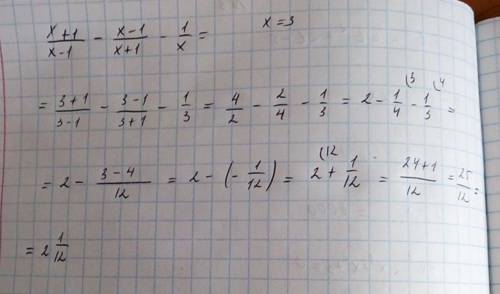 (x+1)/(x-1) - (x-1)/(x+1) - 1/x = x=3
= (3+1)/(3-1) - (3-1)/(3+1) - 1/3 = 4/2 - 2/4 - 1/3 = 2 - 1/4 (3 - 1/3 (4 =
= 2 - (3-4)/12 = 2 - (- 1/12) = 2 (12 + 1/12 = (24+1)/12 = 25/12 =
= 2 1/12